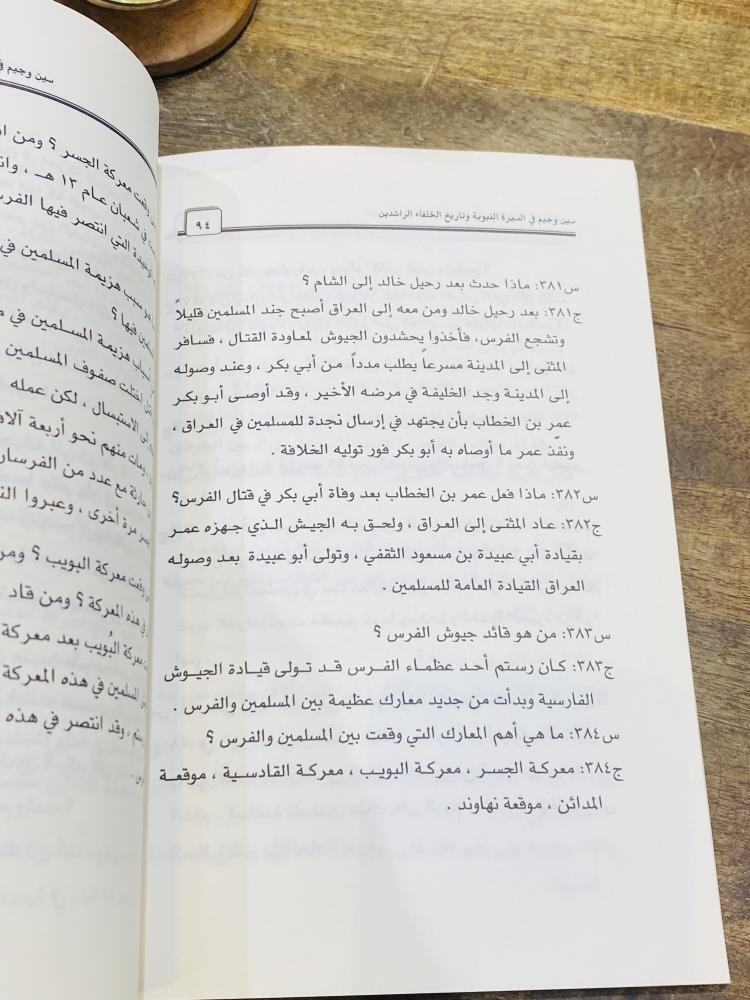 سين وجيم في السيرة النبوية وتاريخ الخلفاء الراشدين
٩٤
س٣٨١: ماذا حدث بعد رحيل خالد إلى الشام ؟
ج٣٨١: بعد رحيل خالد ومن معه إلى العراق أصبح جند المسلمين قليلاً
وتشجع الفرس، فأخذوا يحشدون الجيوش لمعاودة القتال ، فسافر
المثنى إلى المدينة مسرعاً يطلب مدداً من أبي بكر ، وعند وصوله
إلى المدينة وجد الخليفة في مرضه الأخير ، وقد أوصى أبو بكر
عمر بن الخطاب بأن يجتهد في إرسال نجدة للمسلمين في العراق ،
ونفّذ عمر ما أوصاه به أبو بكر فور توليه الخلافة .
س٣٨٢: ماذا فعل عمر بن الخطاب بعد وفاة أبي بكر في قتال الفرس؟
ج٣٨٢: عاد المثنى إلى العراق ، ولحق به الجيش الذي جهزه عمر
بقيادة أبي عبيدة بن مسعود الثقفي ، وتولى أبو عبيدة بعد وصوله
العراق القيادة العامة للمسلمين .
س٣٨٣: من هو قائد جيوش الفرس ؟
ج٣٨٣: كان رستم أحد عظماء الفرس قد تولى قيادة الجيوش
الفارسية وبدأت من جديد معارك عظيمة بين المسلمين والفرس .
س٣٨٤: ما هي أهم المعارك التي وقعت بين المسلمين والفرس ؟
ج٣٨٤: معركة الجسر ، معركة البويب ، معركة القادسية ، موقعة
المدائن ، موقعة نهاوند .
سين وجيم
وقعت معركة الجسر ؟ ومن
في شعبان عام ١٣ هـ ،
التي انتصر فيها
سبب هزيمة المسلمين في
فيها ؟
هزيمة المسلمين في
اختلت صفوف المسلمين
الاستبسال ، لكن عمله
ومات منهم نحو أربعة
حارثة مع عدد من
مرة أخرى ، وعبروا
وقعت معركة البويب ؟
في هذه المعركة ؟ ومن قاد
معركة البُويب بعد معركة
المسلمين في هذه المعركة
وقد انتصر في هذه